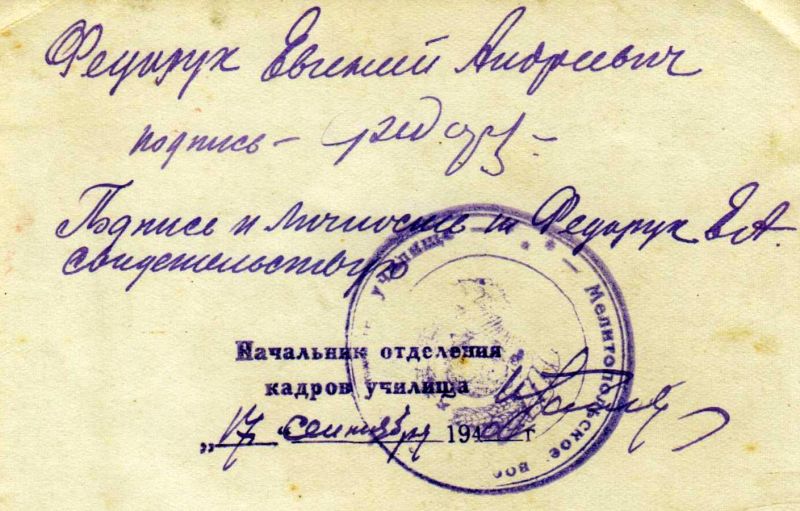 Федорук Евгений Андреевич
подпись –
Подпись и личность Федорук Е.А.
свидетельствую
Начальник отделения
кадров училища
„17" сентября 194 г
Мелитопольское вое
училище